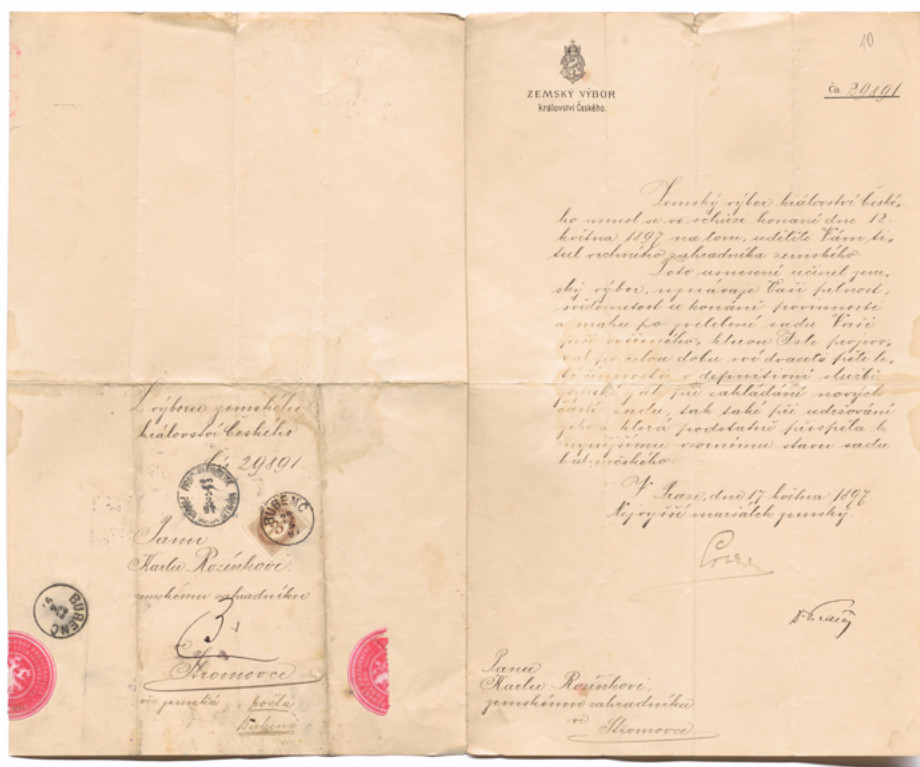 Z výboru zemského
království Českého
čís. 29891.
BUBENČ
Panu
Karlu Rozínkovi
zemskému zahradníku
BUBENČ
v
Stromovce
zemská pošta
Bubenč
10
ZEMSKÝ VÝBOR
království Českého.
čís. 29891
Zemský výbor království České-
ho usnesl se ve schůzi konané dne 12.
května 1897 na tom, uděliti Vám ti-
tul vrchního zahradníka zemského.
Toto usnesení učinil zem-
ský výbor, uznávaje Vaši pilnost,
svědomitost u konání povinností
a snahu po zvelebení sadu Vaší
péči svěřeného, kterou Jste projevo-
val po celou dobu své dvacetipětile-
té činnosti v definitivní službě
zemské jak při zakládání nových
částí sadu, tak také při udržování
jeho a která podstatně přispěla k
nynějšímu vzornému stavu sadu
bubenečského.
V Praze, dne 17. května 1897.
Nejvyšší maršálek zemský:
Panu
Karlu Rozínkovi,
zemskému zahradníku
ve
Stromovce